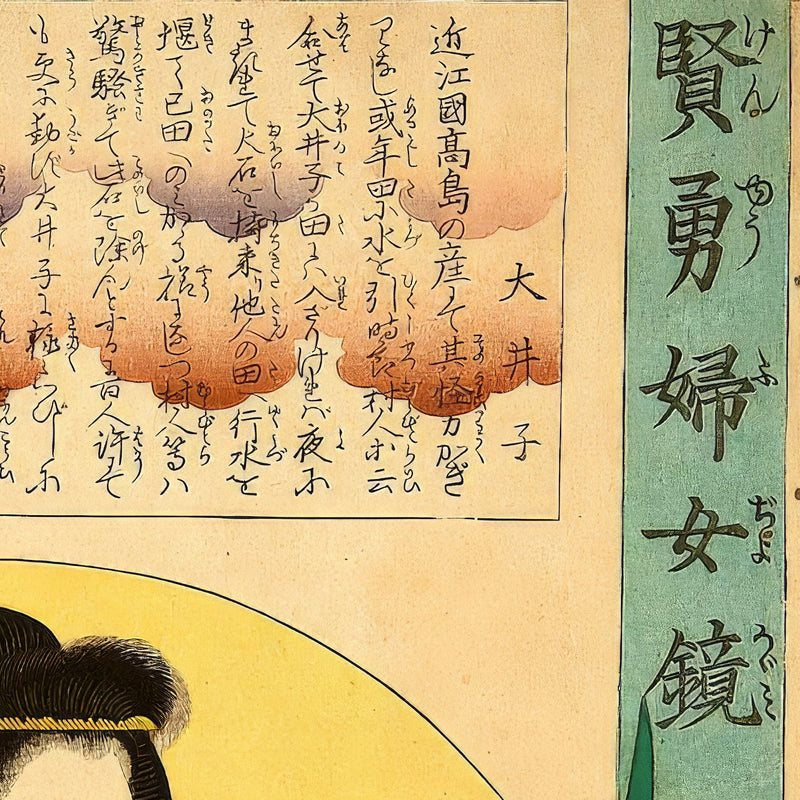 賢勇婦女鏡
けんゆうふぢよかゞみ
大井子
近江國高島の産にて其怪力かぎ
りなし或年田に水を引時節村人に云
合せて大井子の田には入ざりければ夜に
まぎれて大石を持来り他人の田へ行水を
堰て己田へのみかゝる様になしつ村人等は
驚騒ぎて此石を除んとするに百人許にて
も更に動ず大井子に